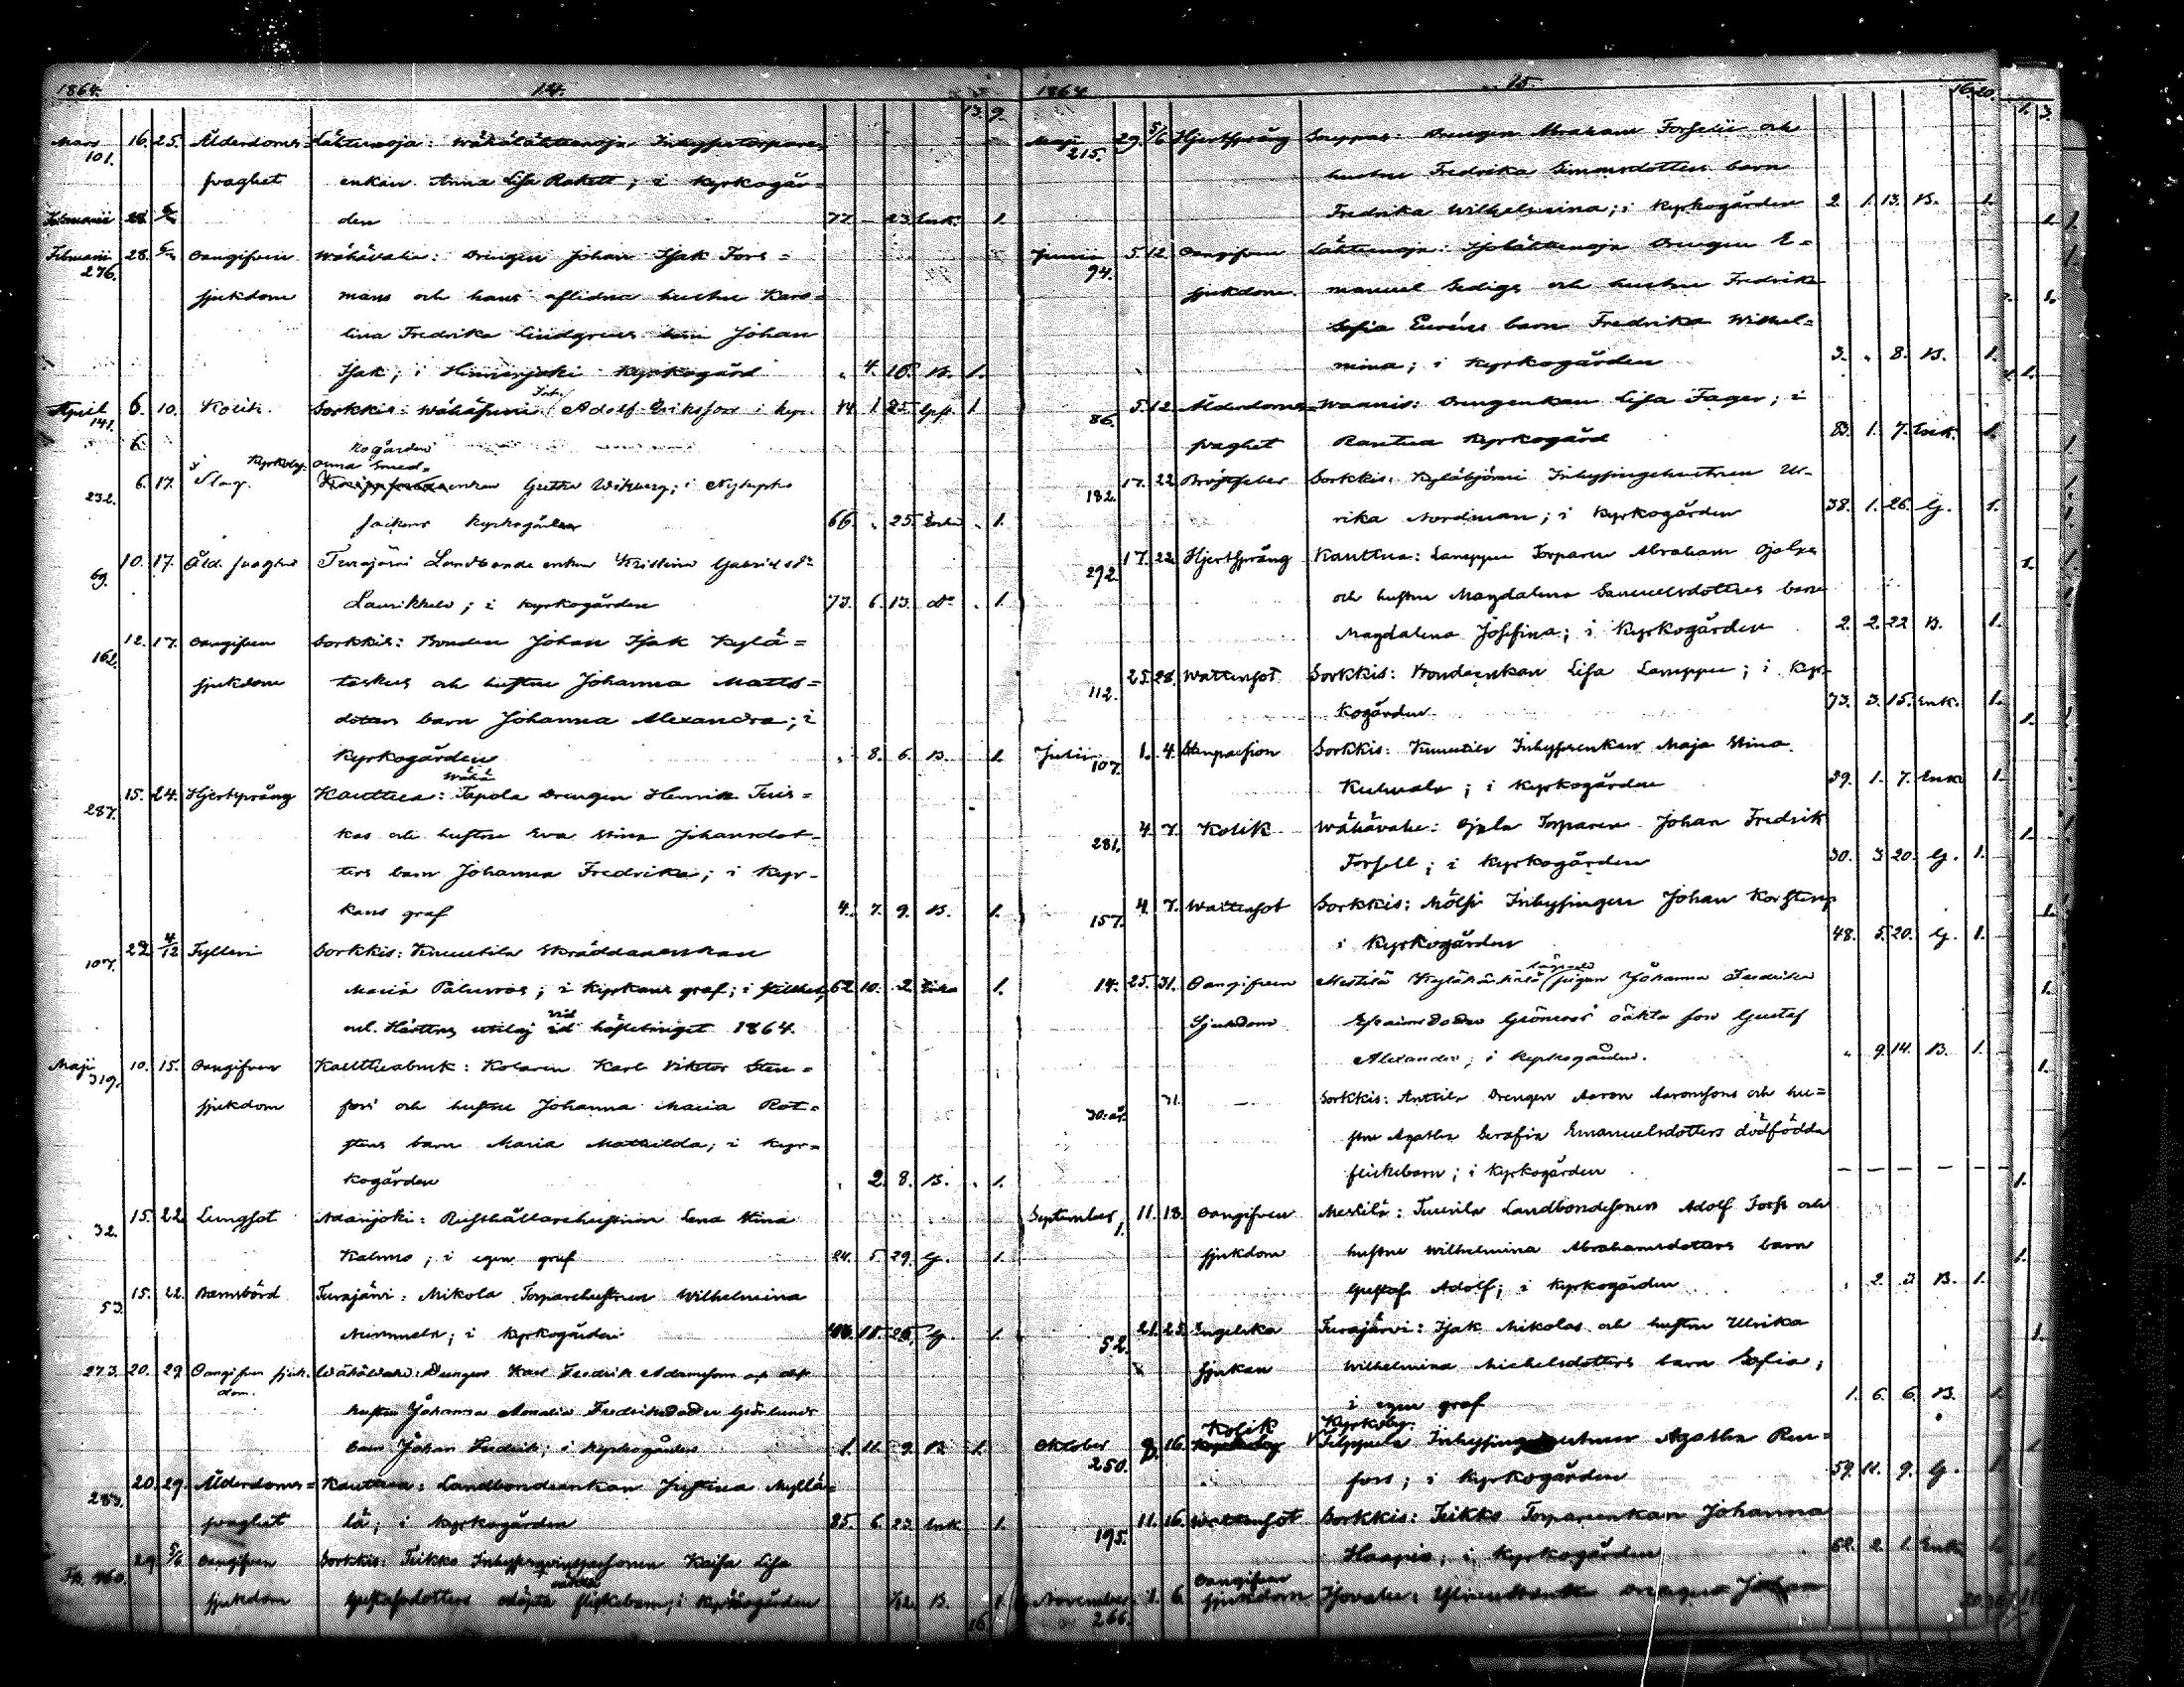 1864. 14.
13. 9.
Mars 16. 25. Ålderdoms= Lähtenoja: Wähälähtenoja Inhysestorpare=
101. svaghet enkan Anna Lisa Rakett; i kyrkogår=
Februarii 28 den 77. — 23 Enk. 1.
Februarii 28. Oangifven Wähävahe: Drengen Johan Isak Fors=
276. sjukdom mans och hans aflidna hustru Karo=
lina Fredrika Lindgrens barn Johan
Isak; i Himanjoki kyrkogård „ 4. 16. B. 1.
April 6. 10. Kolik. Sorkkis: Wähäsuni Inh. Adolf Eriksson i kyr- 74 1 25 Gift 1
141. kogården
6.
Kyrkoby. Arma Smed=
232. 6. 17. Slag. enkan Gretha Wikberg; i Nykyrko
sockens kyrkogården 66. „ 25. Enka . 1.
69. 10. 17. Åld. svaghet Turajärvi Landbonde enkan Kristina Gabrielsdr
Laurikkala; i kyrkogården 73. 6. 13. do . 1.
162. 12. 17. Oangifven Sorkkis: Bonden Johan Isak Kylä=
sjukdom taskus och hustru Johanna Matts=
dotters barn Johanna Alexandra; i
kyrkogården „ 8. 6. B. 1.
Wähä
287. 15. 24. Hjertsprång Kauttua: Tapola Drengen Henrik Tuis=
kas och hustru Eva Stina Johansdot=
ters barn Johanna Fredrika; i kyr-
kans graf 4. 7. 9. B. 1.
107. 29 4/12 Fylleri Sorkkis: Knuutila Skräddareenkan
Maria Palmroos; i kyrkans graf; i 62 10. 2 Enka 1.
vid höstetinget 1864.
Maji 10. 15. Oangifven Kauttuabruk: Kolaren Karl Viktor Sten=
319. sjukdom fors och hustru Johanna Maria Rot=
stens barn Maria Mathilda; i kyr=
kogården „ 2. 8. B. . 1.
32. 15. 22 Lungsot Adamjoki: Rusthållarehustrun Lena Stina
Kalmo; i egen graf 24. 5. 29. G. 1.
53. 15. 22. Barnsbörd Turajärvi: Mikola Torparehustrun Wilhelmina
Nummela; i kyrkogården 11 25 G. 1.
273. 20. 29 Oangifven sjuk- Wähävahe: Drengen Karl Fredrik Adamsson och
dom. hustru Johanna Amalia Fredriksdotter Grönlunds
barn Johan Fredrik; i kyrkogården 1. 11. 9. B. 1.
283. 20. 29. Ålderdoms= Kauttua: Landbondeenkan Justina Myllä=
svaghet lä; i kyrkogården 85. 6. 23 Enk 1.
Fk. 460. 29 5/6 Oangifven Sorkkis: Teikko Inhysesqvinspersonen Kaisa Lisa
sjukdom Gustafsdotters odöpta oäkta flickebarn; i kyrkogården 1/52. B. 1
16
1864 15. 16. 20.
Maji 29. 5/6 Hjertsprång Souppas: Drengen Abraham Forselii och
215. hustru Fredrika Simonsdotters barn
Fredrika Wilhelmina; i kyrkogården 2. 1. 13. B. 1.
Junii 5 12. Oangifven Lähtenoja: Isolähtenoja Drengen E=
94. sjukdom. manuel Sedigs och hustru Fredrika
Sofia Euréns barn Fredrika Wilhel=
mina; i kyrkogården 3. „ 8. B. 1.
86. 5. 12. Ålderdoms= Waanis: Drengenkan Lisa Fager; i
svaghet Rantua kyrkogård 83. 1. 7. Enk. 1.
182. 17. 22 Bröstfeber Sorkkis: Kyläbjörni Inhysingehustrun Ul-
rika Nordman; i kyrkogården 38. 1. 26. G. 1.
292. 17. 22 Hjertsprång Kauttua: Lamppu Torparen Abraham Ojalas
och hustru Magdalena Samuelsdotters barn
Magdalena Josefina; i kyrkogården 2. 2. 22 B. 1.
112. 25 28. Wattensot Sorkkis: Bondeenkan Lisa Lamppu; i kyr-
kogården 73. 3. 15. Enk. 1.
Julii 1. 4. Stenpassion Sorkkis: Knuutila Inhysesenkan Maja Stina
107. Kulmala; i kyrkogården 39. 1. 7. Enk. 1.
281. 4. 7. Kolik Wähävahe: Ojala Torparen Johan Fredrik
Forsell; i kyrkogården 30. 3 20. G. 1.
157. 4. 7. Wattensot Sorkkis: Mölsi Inhysingen Johan Korsten;
i kyrkogården 48. 5. 20. G. 1.
14. 25. 31. Oangifven Mestilä Kylähänkälä pigan Johanna Fredrika
Sjukdom Efraimsdotter Grönroos' oäkta son Gustaf
Alexander; i kyrkogården. „ 9. 14. B. 1.
30. år. 31. — Sorkkis: Anttila Drengen Aaron Aaronsons och hu=
stru Agatha Serafia Emanuelsdotters dödfödda
flickebarn; i kyrkogården — — — —
September 11. 18. Oangifven Mestilä: Tuuvila Landbondesonen Adolf Forss och
1. sjukdom hustru Wilhelmina Abrahamsdotters barn
Gustaf Adolf; i kyrkogården „ 2. 3 B. 1.
52. 21. 25. Engelska Turajärvi: Isak Mikolas och hustru Ulrika
sjukan Wilhelmina Michelsdotters barn Sofia;
i egen graf 1. 6. 6. B. 1.
Kolik Kyrkoby.
Oktober 9. 16. Filppula Inhysingehustrun Agatha Ren=
250. fors; i kyrkogården 59. 11. 9. G. 1
195. 11. 16. Wattensot Sorkkis: Teikko Torpareenkan Johanna
Haapio; i kyrkogården 62. 2 1. Enk. 1.
Oangifven
November 1. 6. sjukdom Isovahe: Drengen Johan
266.